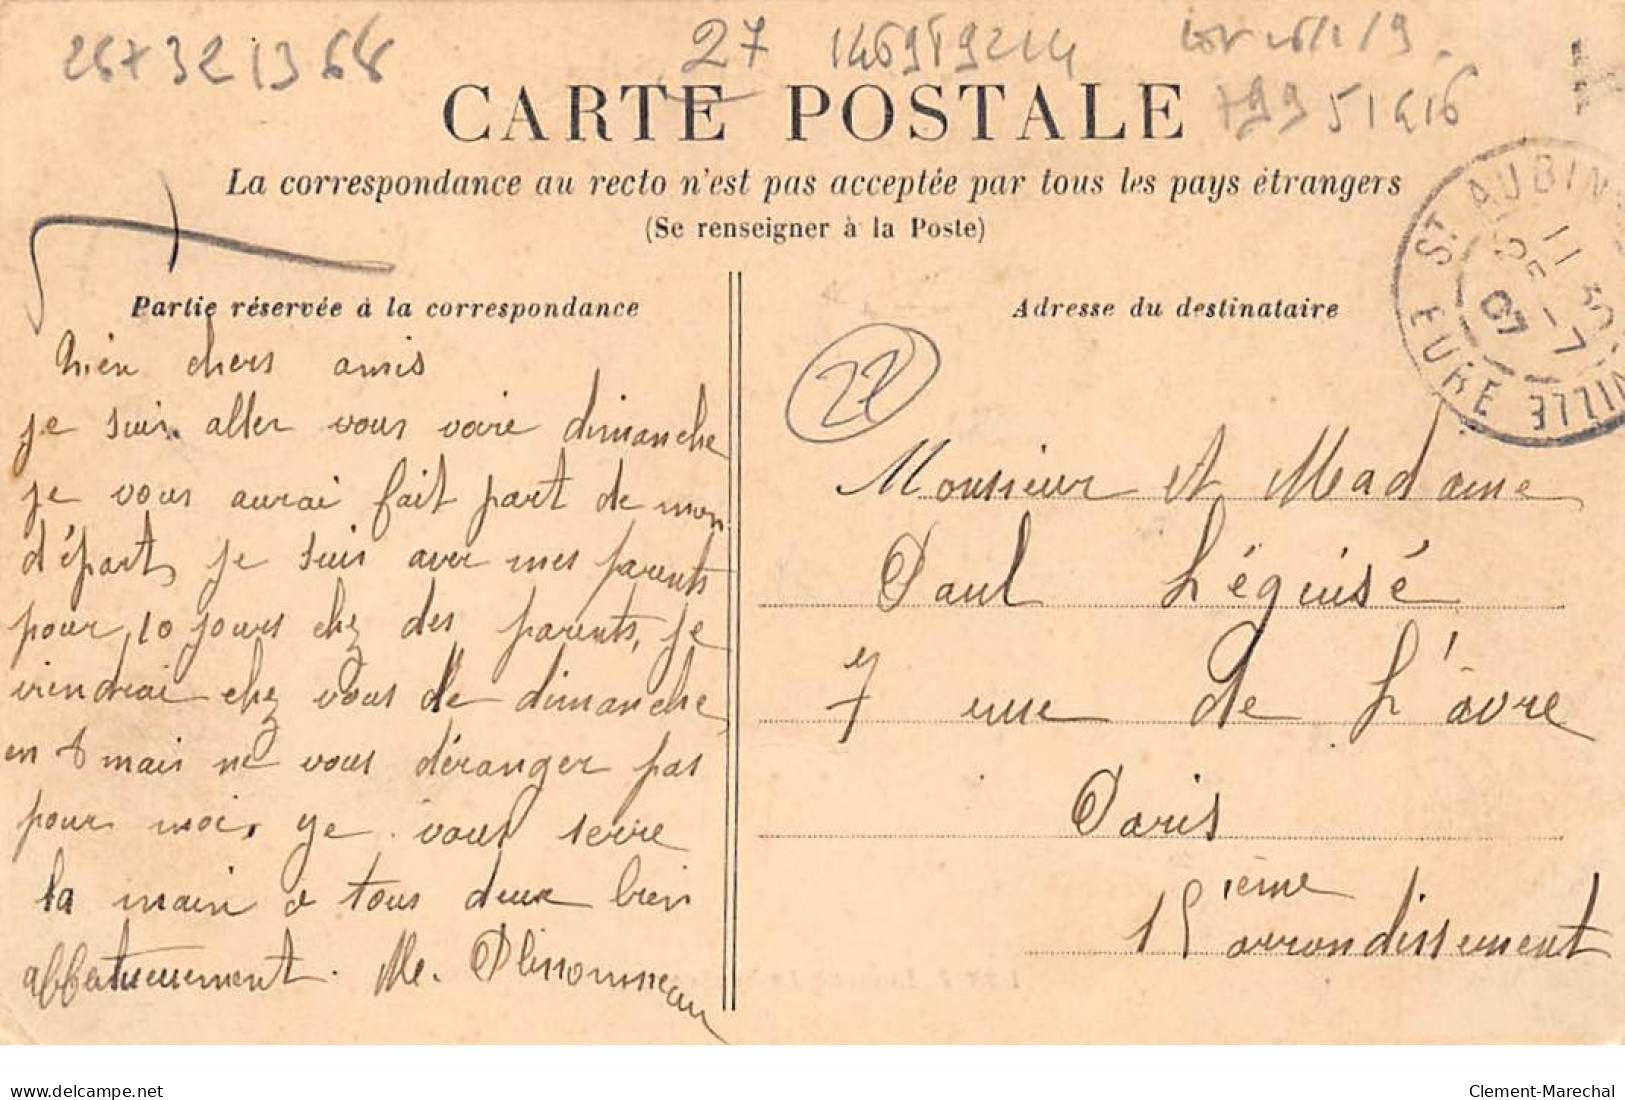 26732 1368
27
146989214
CARTE POSTALE
La correspondance au recto n'est pas acceptée par tous les pays étrangers
(Se renseigner à la Poste)
ST AUBIN
EURE
11 30
25 - 7
07
Partie réservée à la correspondance
Mien chers amis
je suis aller vous voire dimanche
je vous aurai fait part de mon
départ, je suis avec mes parents
pour 10 jours chez des parents, je
viendrai chez vous de dimanche
en 8 mais ne vous déranger pas
pour moi, ye vous serre
la main a tous deux bien
Me.
Adresse du destinataire
27
Monsieur et Madame
Paul Léguisé
7 rue de L'âvre
Paris
15ième arrondissement
delcampe.net
Clement-Marechal